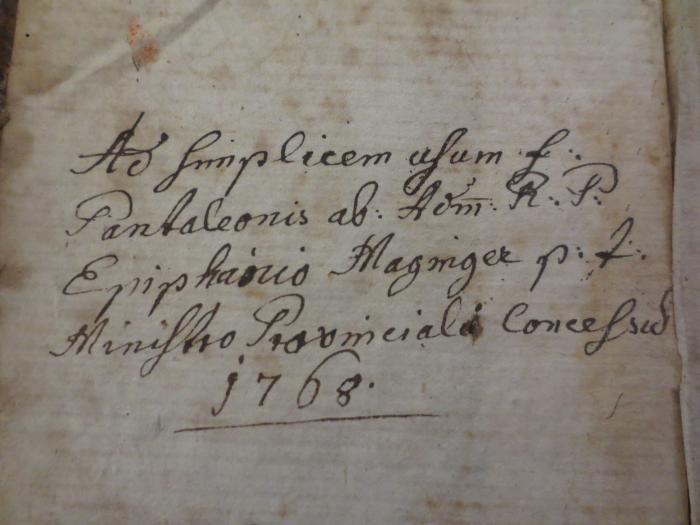 Ad simplicem usum f:
Pantaleonis ab: Adm̅: R: P:
Epiphanio Maginger p: t:
Ministro Provinciali Concessus
1768.